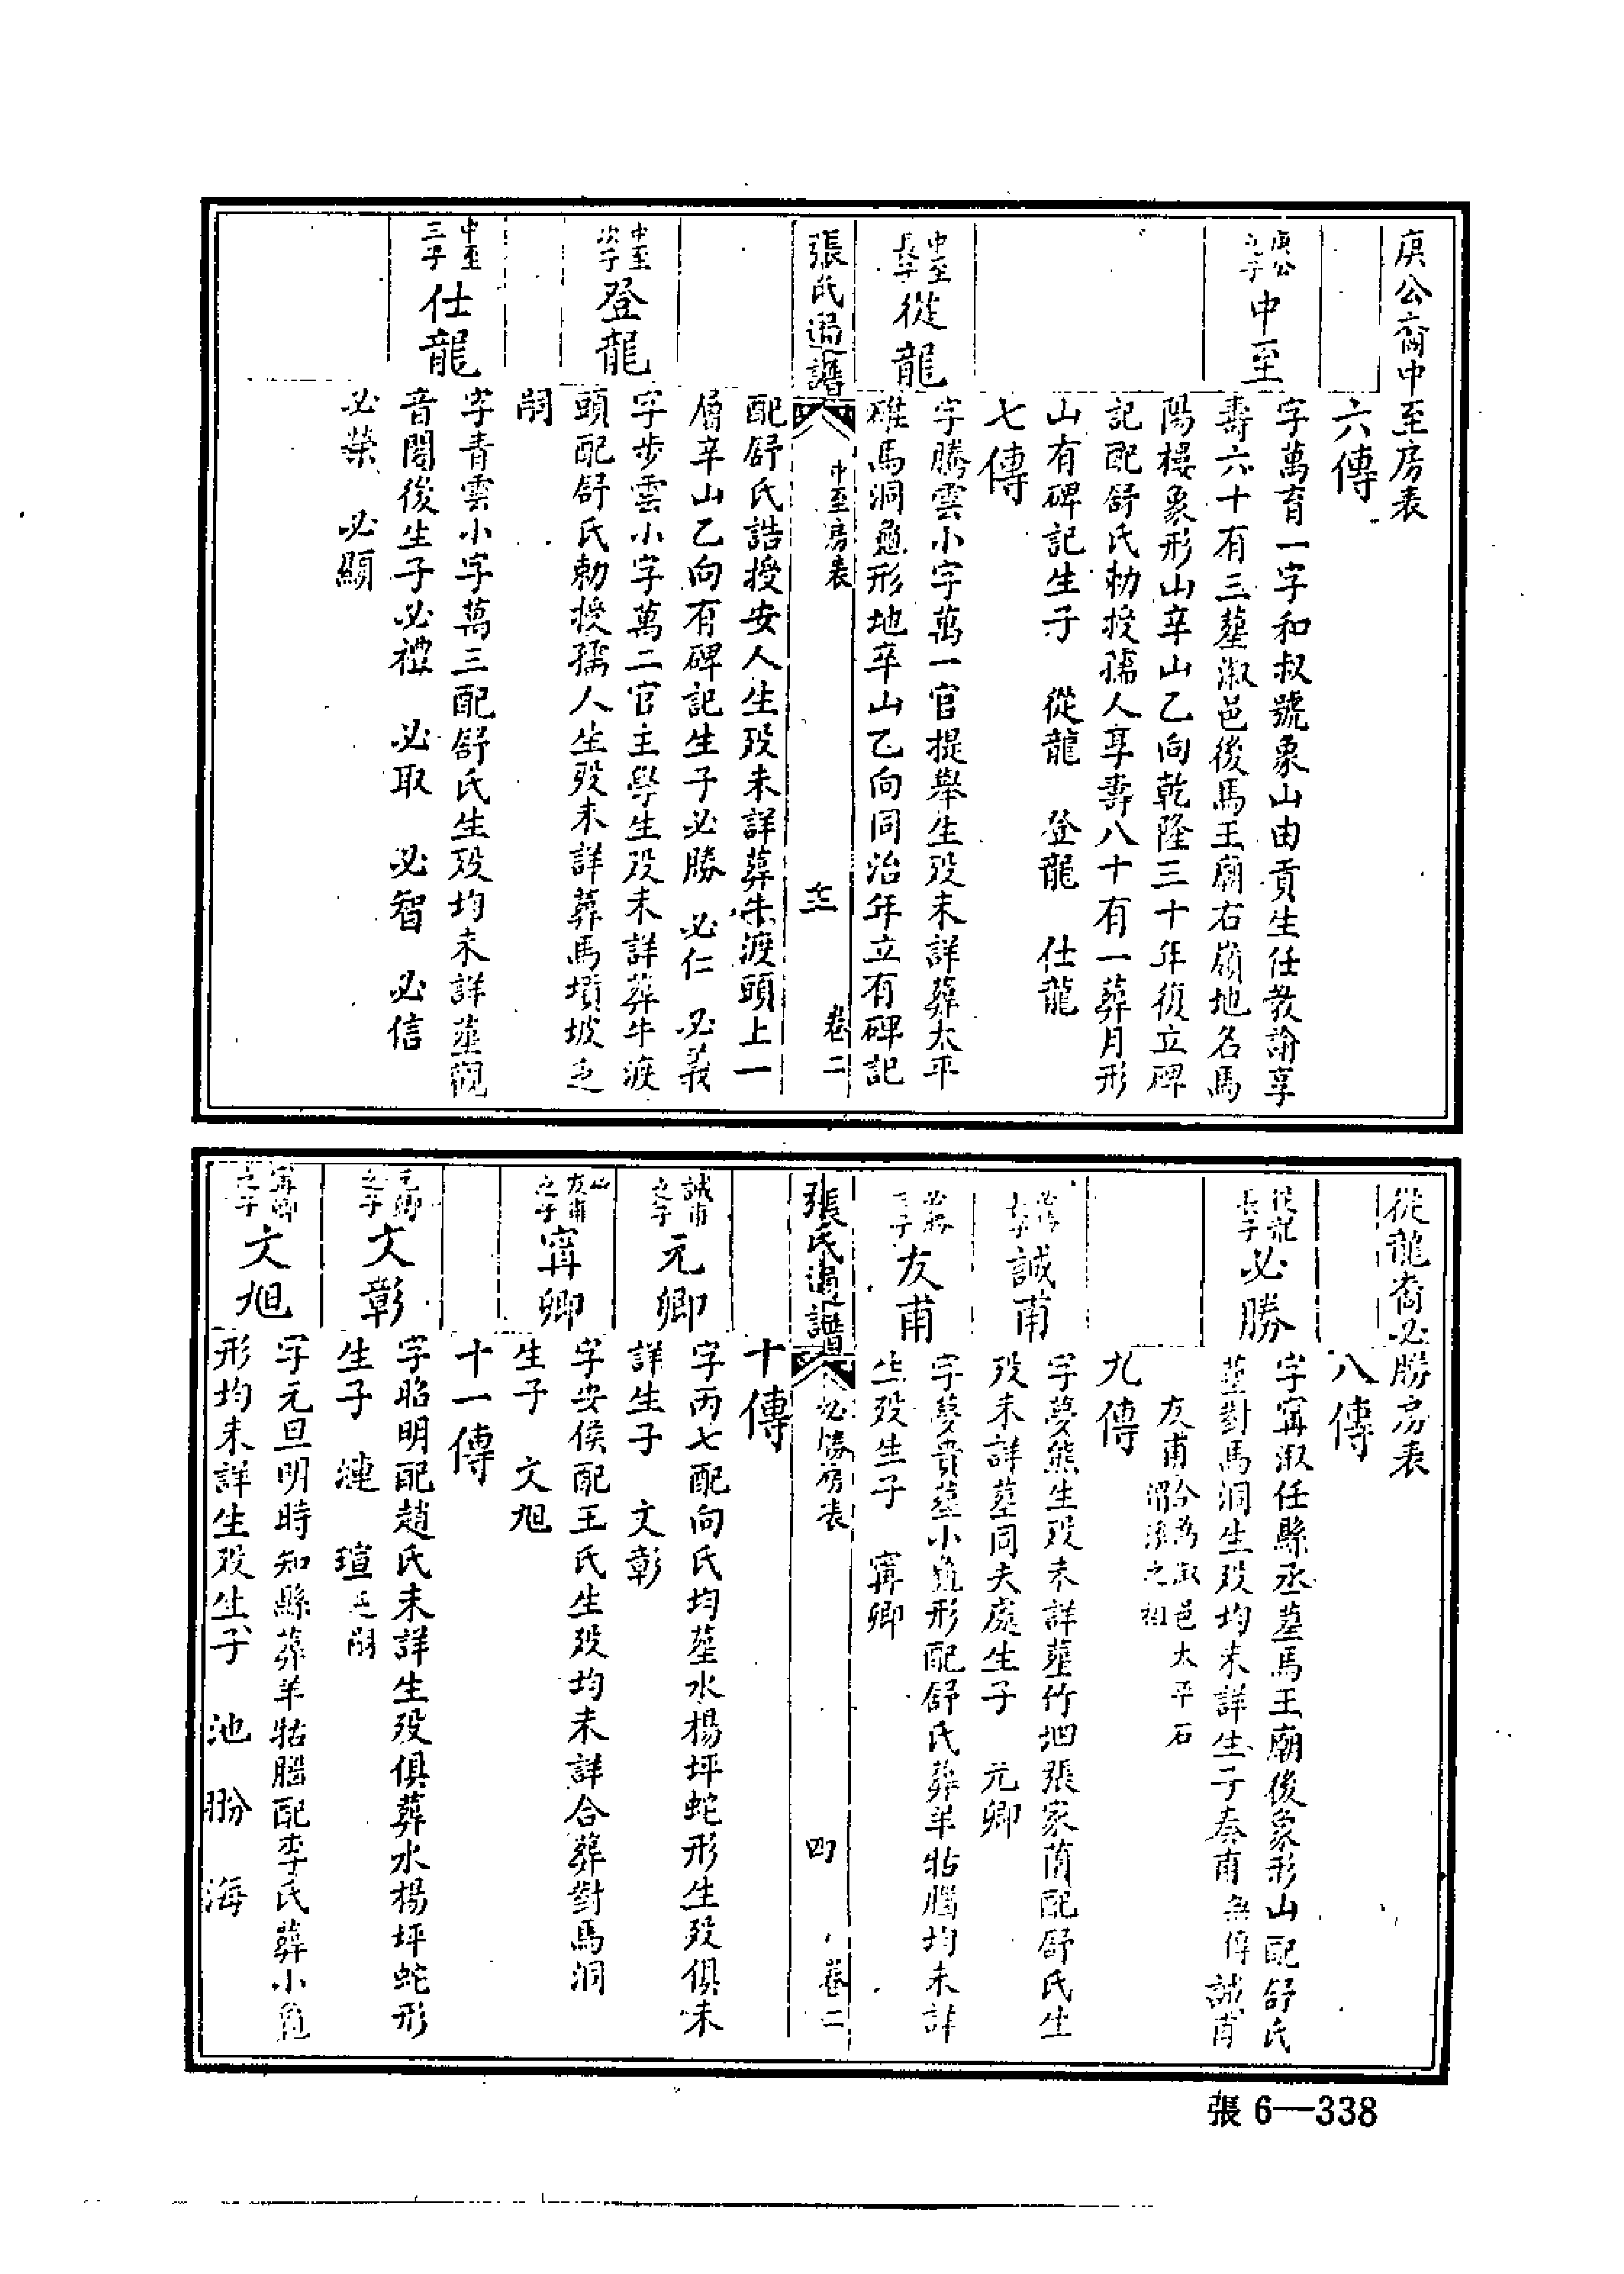 庚公裔中至房表
六傳
庚公之子
中至
字萬育一字和叔號象山由貢生任教諭享
壽六十有三塟溆邑後馬王廟右嶺地名馬
陽樓象形山辛山乙向乾隆三十年復立碑
記配舒氏勅授孺人享壽八十有一葬月形
山有碑記生子 從龍 登龍 仕龍
七傳
中至長子
從龍
字騰雲小字萬一官提舉生殁未詳葬太平
碓馬洞龜形地辛山乙向同治年立有碑記
張氏通譜
中至房表
三
卷二
配舒氏誥授安人生殁未詳葬朱渡頭上一
層辛山乙向有碑記生子必勝 必仁 必義
中至次子
登龍
字步雲小字萬二官主學生殁未詳葬牛渡
頭配舒氏勅授孺人生殁未詳葬馬墳坡乏
嗣
中至三子
仕龍
字青雲小字萬三配舒氏生殁均未詳塟觀
音閣後生子必禮 必取 必智 必信
必榮 必顯
從龍裔必勝房表
八傳
從龍長子
必勝
字甯溆任縣丞墓馬王廟後象形山配舒氏
塟對馬洞生殁均未詳生子泰甫無傳誠甫
友甫分為溆邑太平石
九傳
誠甫
字夢熊生殁未詳塟竹泗張家蕳配舒氏生
殁未詳塟同夫處生子 元卿
友甫
字夢貴塟小龜形配舒氏葬羊牯腦均未詳
生殁生子 甯卿
張氏通譜
必勝房表
四
卷二
十傳
誠甫之子
元卿
字丙七配向氏均塟水楊坪蛇形生殁俱未
詳生子 文彰
友甫之子
甯卿
字安侯配王氏生殁均未詳合葬對馬洞
生子 文旭
十一傳
元卿之子
文彰
字昭明配趙氏未詳生殁俱葬水楊坪蛇形
生子 漣 瑄乏嗣
甯卿之子
文旭
字元旦明時知縣葬羊牯腦配李氏葬小龜
形均未詳生殁生子 池 䏧 海
張6—338